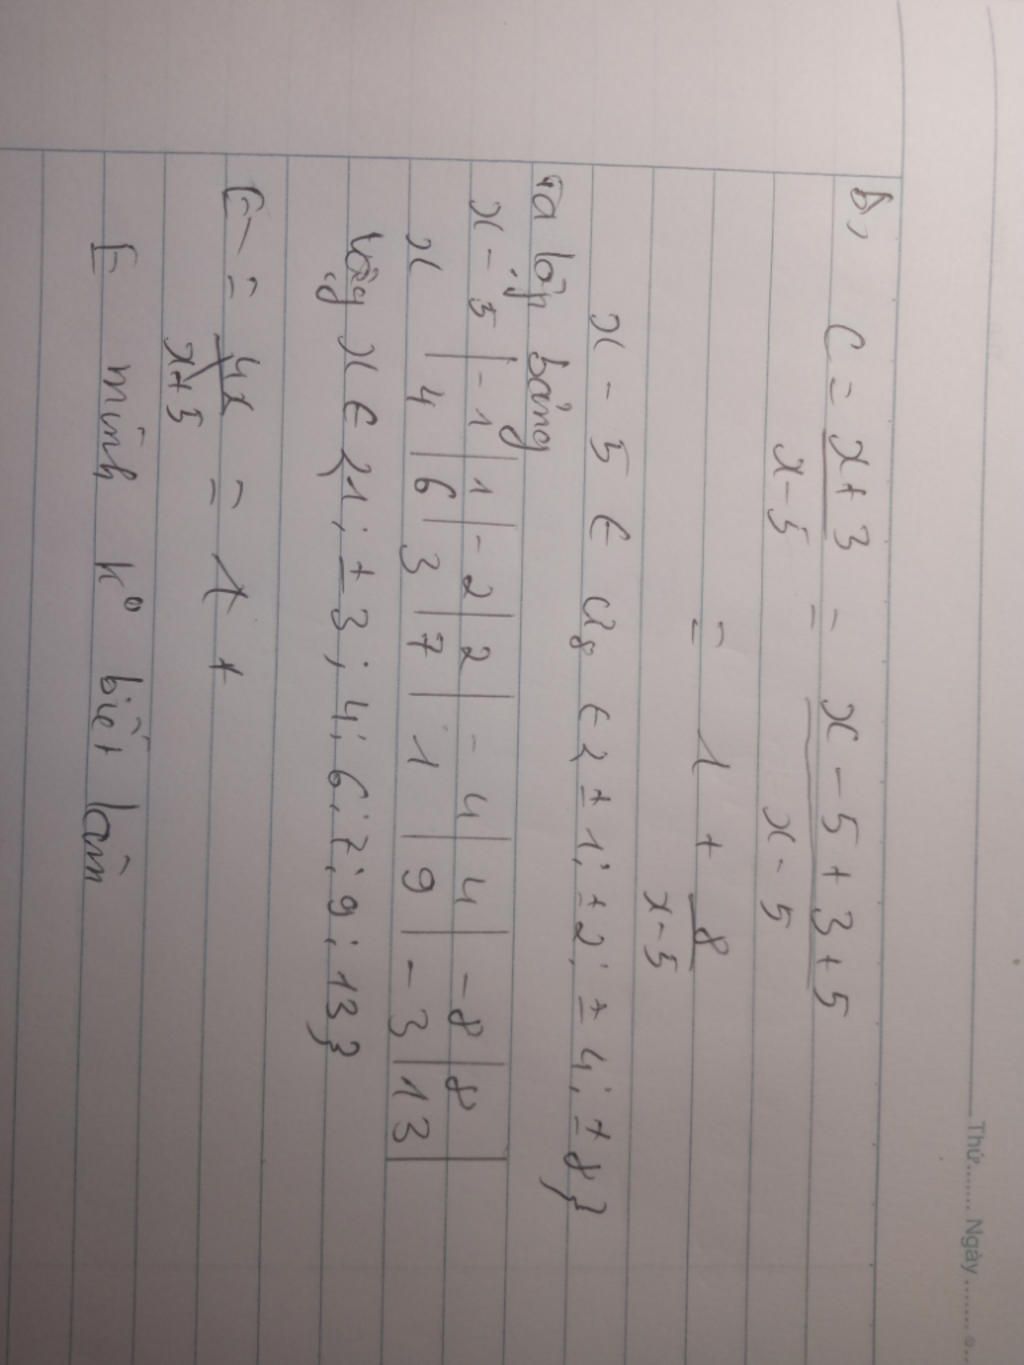 Thứ....... Ngày .......
b, C = x+3 / x-5 = x-5+3+5 / x-5
= 1 + 8 / x-5
x - 5 ∈ Ư8 ∈ { ± 1; ±2; ± 4; ± 8}
ta lập bảng
x - 5 | -1 | 1 | -2 | 2 | -4 | 4 | -8 | 8
x | 4 | 6 | 3 | 7 | 1 | 9 | -3 | 13
vậy x ∈ {1; ±3; 4; 6; 7; 9; 13}
= 4x / x+3 = 1 +
E mình k° biết làm